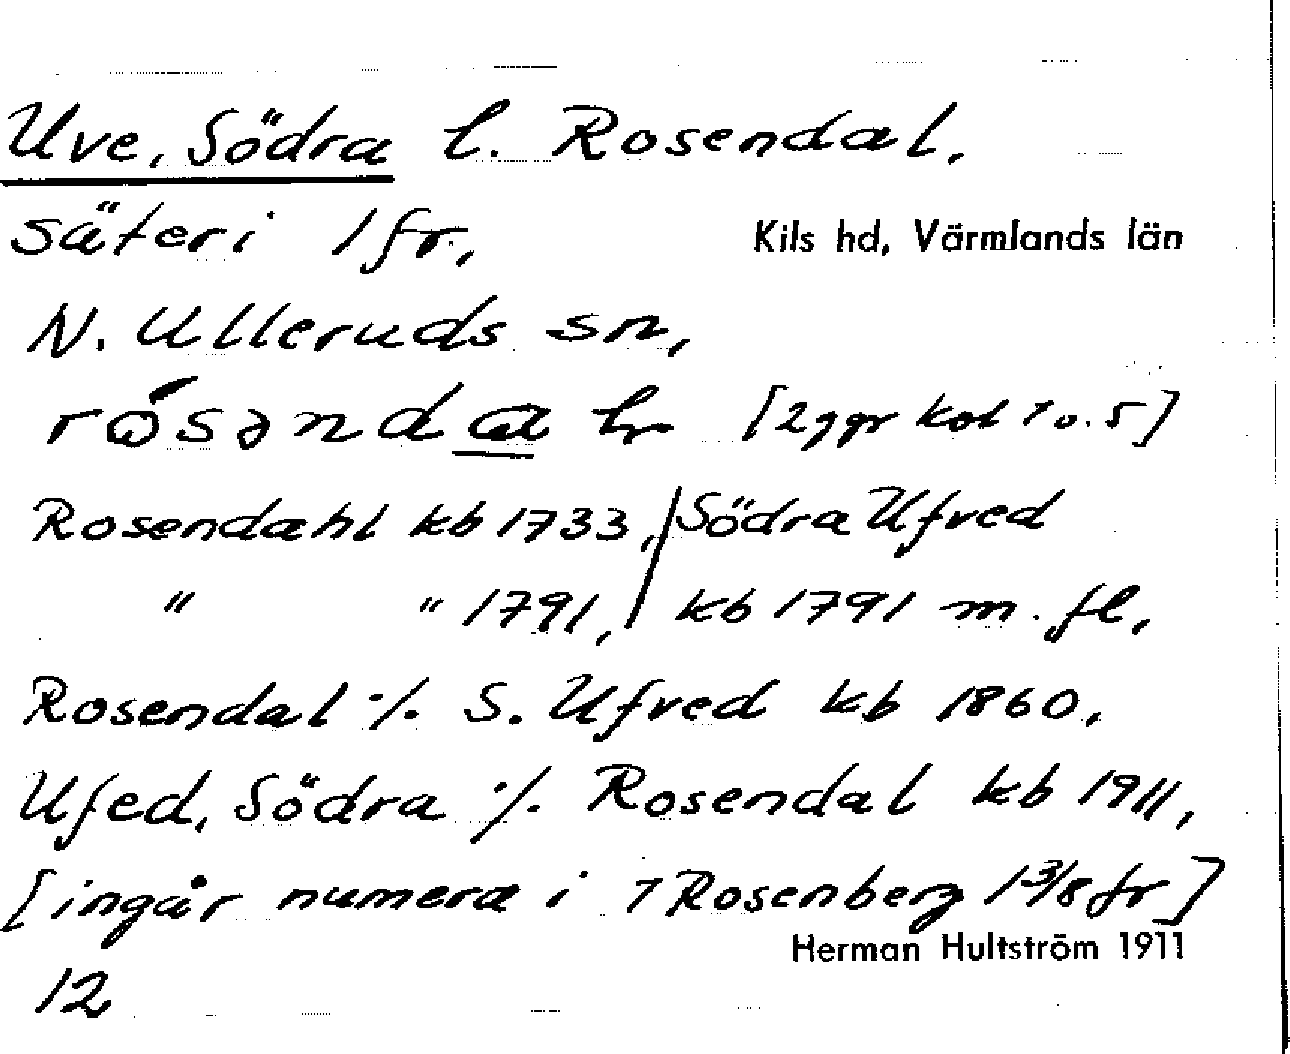 Uve, Södra l. Rosendal,
säteri 1 fr., Kils hd, Värmlands län
N. Ulleruds sn,
[2 ggr kol 1 o. 5]
Rosendahl kb 1733, / Södra Ufved
" " 1791, / kb 1791 m. fl,
Rosendal ·/. S. Ufved kb 1860,
Ufed, Södra ·/. Rosendal kb 1911,
[ingår numera i 7 Rosenberg 1 3/8 fr]
Herman Hultström 1911
12